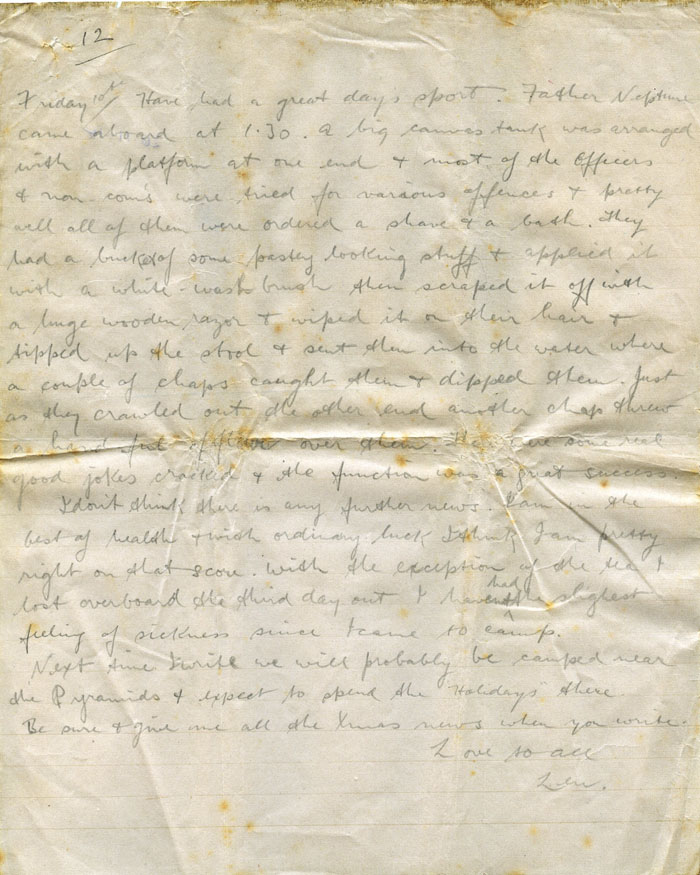 12
Friday 10th/ Have had a great days sport. Father Neptune
came aboard at 1.30. A big canvas tank was arranged
with a platform at one end + most of the Officers
+ non-coms were tried for various offences + pretty
well all of them were ordered a shave + a bath. They
had a bucket of some pastey looking stuff + applied it
with a white-wash brush then scraped it off with
a huge wooden razor + wiped it on their hair +
tipped up the stool + sent them into the water where
a couple of chaps caught them + dipped them. Just
as they crawled out the other end another chap threw
a hand full of over them. were some real
good jokes cracked + the function was a great success.
I don't think there is any further news. I am in the
best of health + with ordinary luck I think I am pretty
right on that score. With the exception of the tea I
lost overboard the third day out I havent had the slightest
feeling of sickness since I came to camp.
Next time I write we will probably be camped near
the Pyramids + expect to spend the "Holidays" there
Be sure + give me all the Xmas news when you write.
Love to all
Len.